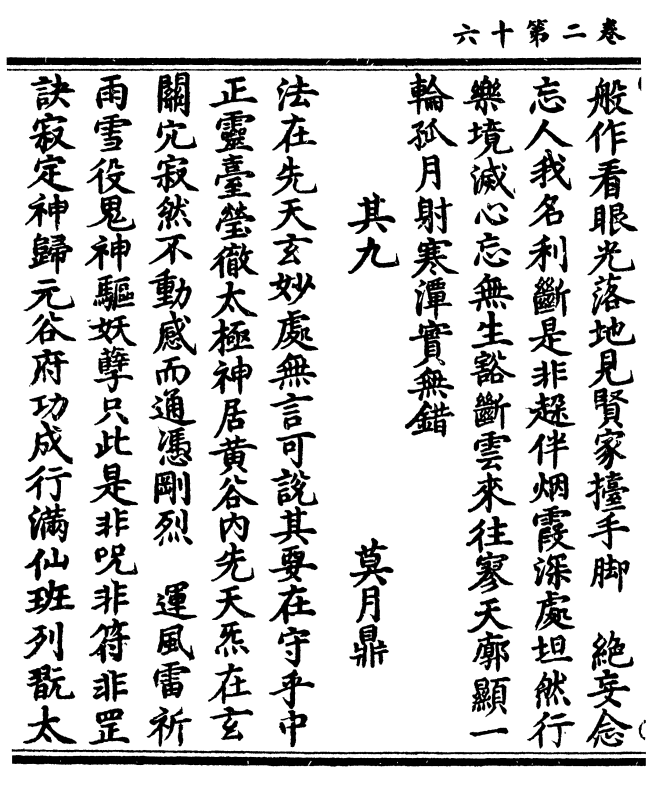 卷二第十六
般作看眼光落地見賢家擡手脚　絶妄念
忘人我名利斷是非趖伴烟霞深處坦然行
樂境滅心忘無生豁斷雲來往寥天廓顯一
輪孤月射寒潭實無錯
其九　莫月鼎
法在先天玄妙處無言可說其要在守乎中
正靈臺瑩徹太極神居黄谷内先天炁在玄
關宂寂然不動感而通憑剛烈　運風雷祈
雨雪役鬼神驅妖孽只此是非咒非符非罡
訣寂定神歸元谷府功成行滿仙班列翫太